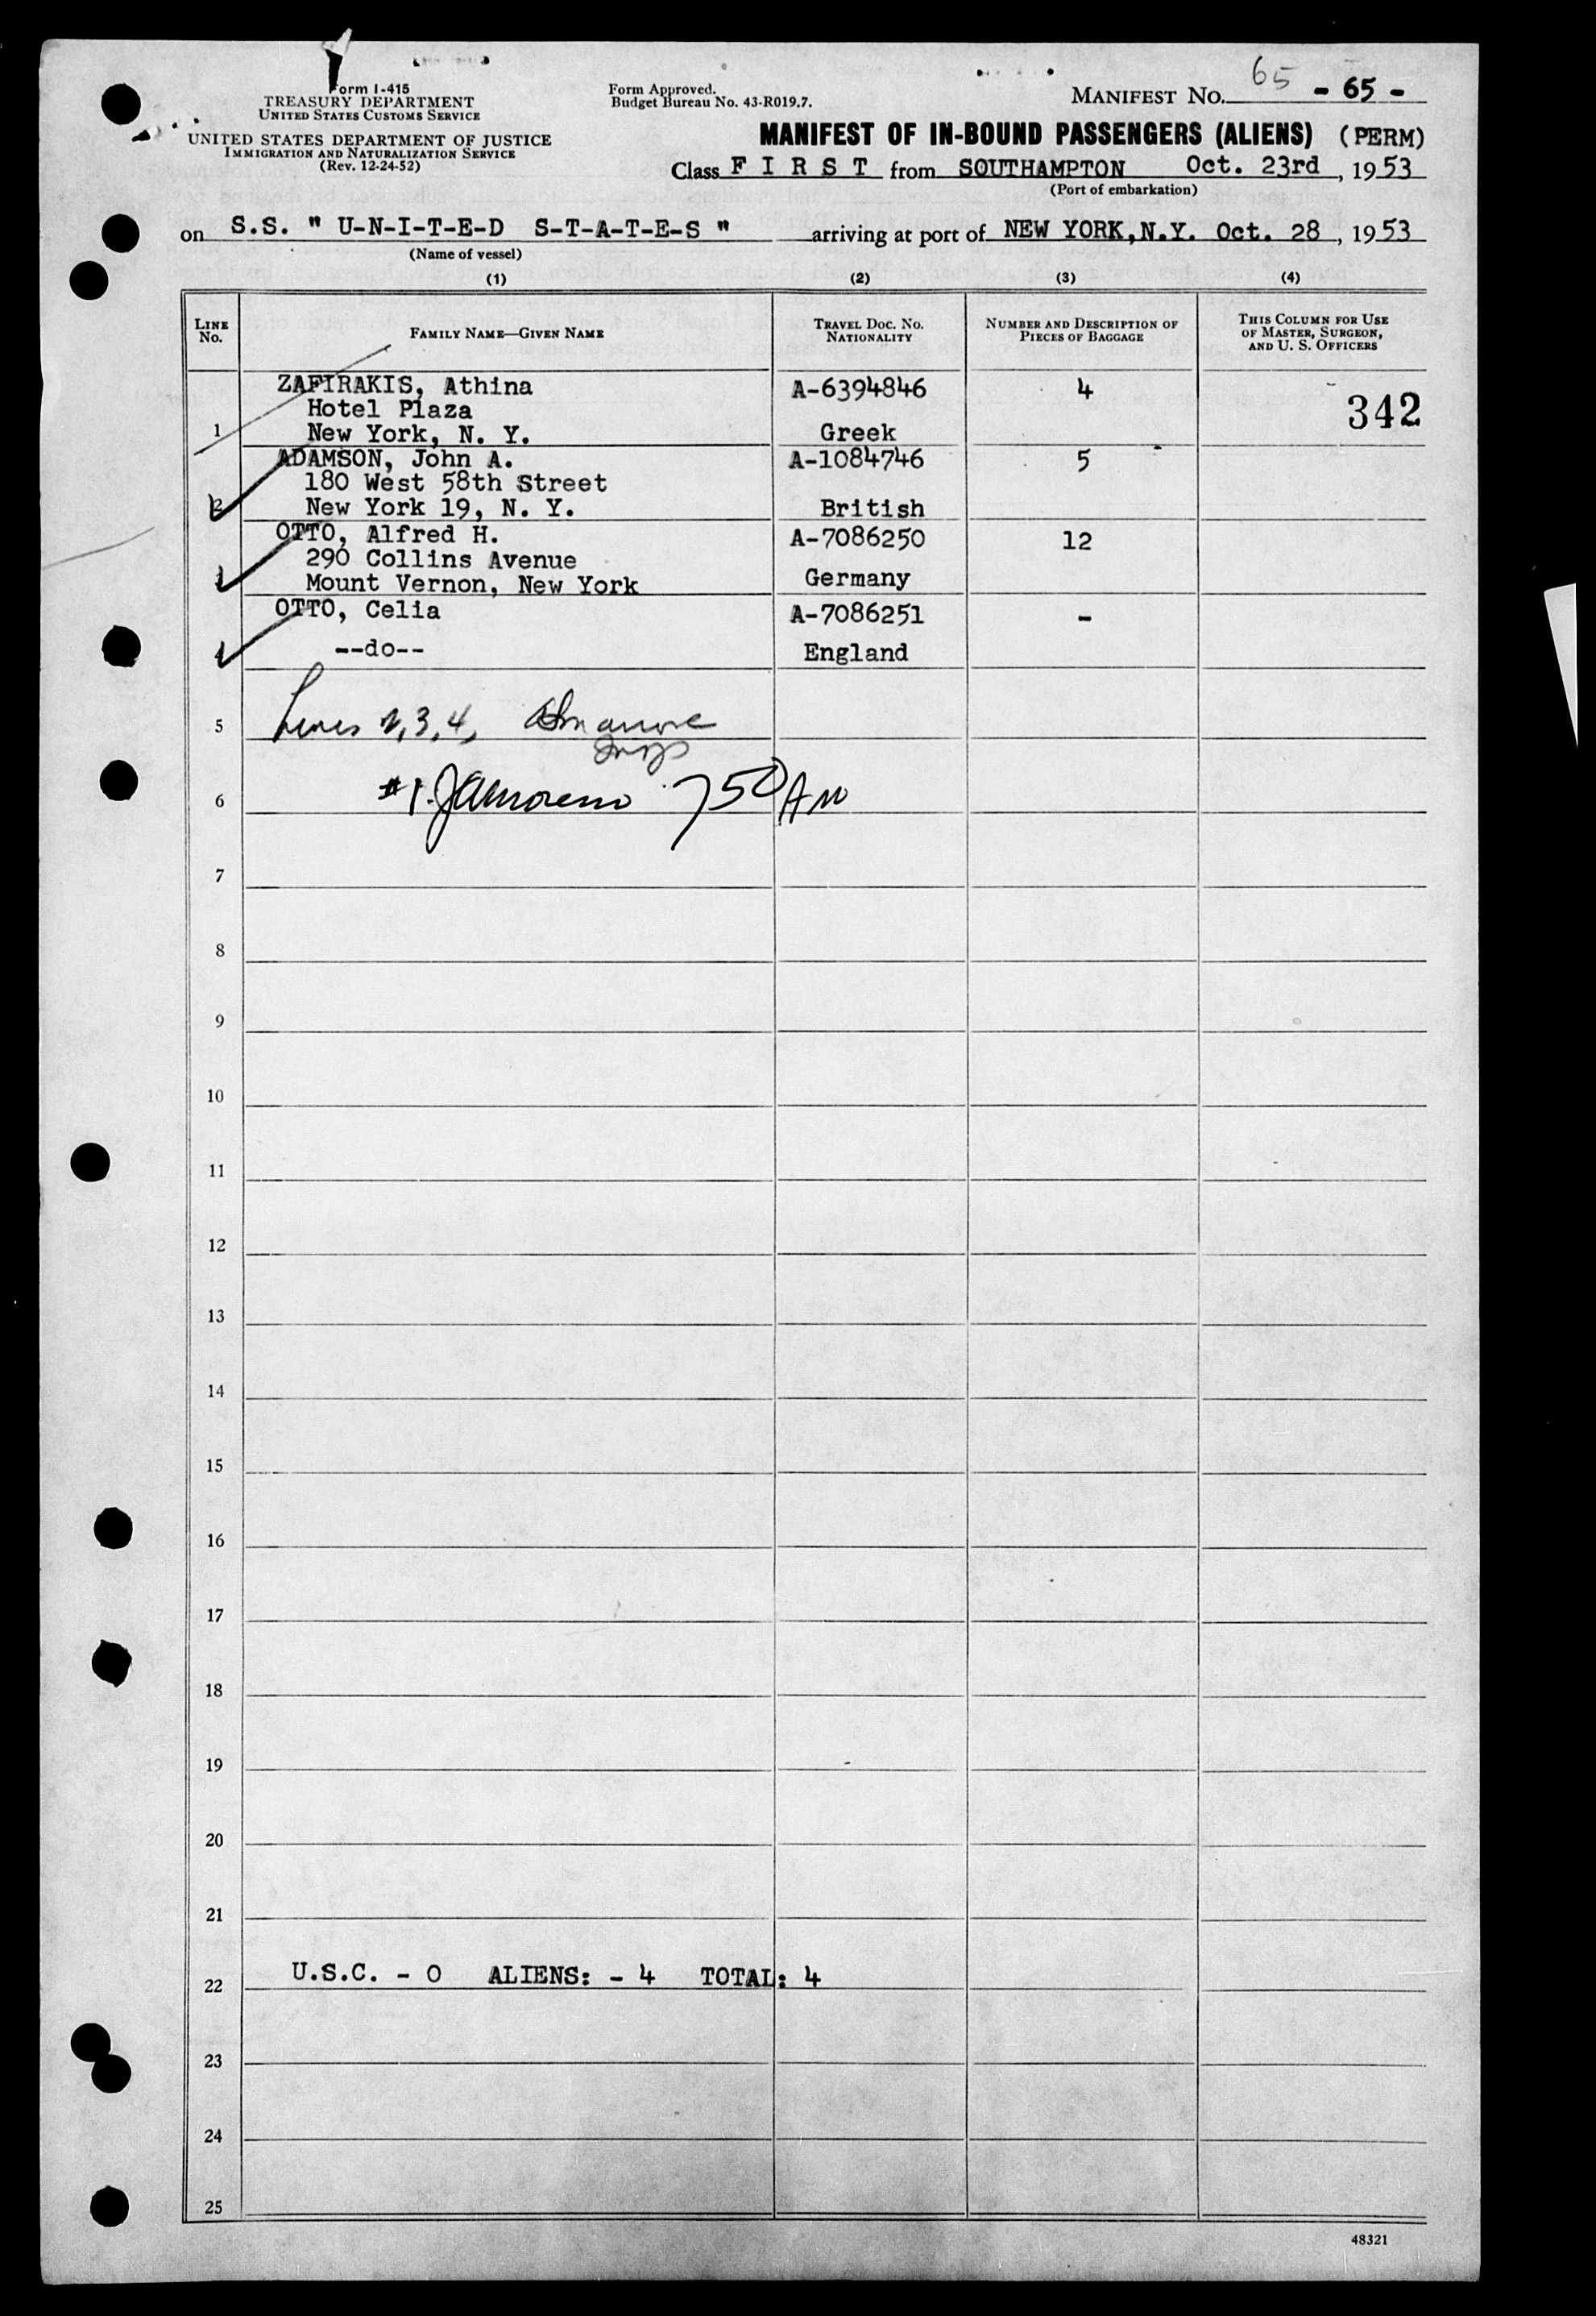 Form I-415
TREASURY DEPARTMENT
UNITED STATES CUSTOMS SERVICE
UNITED STATES DEPARTMENT OF JUSTICE
IMMIGRATION AND NATURALIZATION SERVICE
(Rev. 12-24-52)
Form Approved.
Budget Bureau No. 43-R019.7.
MANIFEST NO. 65 - 65 -
MANIFEST OF IN-BOUND PASSENGERS (ALIENS) (PERM)
Class F I R S T from SOUTHAMPTON Oct. 23rd, 1953
(Port of embarkation)
on S.S. " U-N-I-T-E-D S-T-A-T-E-S " arriving at port of NEW YORK,N.Y. Oct. 28, 1953
(Name of vessel)
(1) (2) (3) (4)
LINE No.
FAMILY NAME—GIVEN NAME
TRAVEL DOC. NO.
NATIONALITY
NUMBER AND DESCRIPTION OF
PIECES OF BAGGAGE
THIS COLUMN FOR USE
OF MASTER, SURGEON,
AND U. S. OFFICERS
ZAFIRAKIS, Athina A-6394846 4 342
Hotel Plaza
1 New York, N. Y. Greek
ADAMSON, John A. A-1084746 5
180 West 58th Street
2 New York 19, N. Y. British
OTTO, Alfred H. A-7086250 12
290 Collins Avenue
Mount Vernon, New York Germany
OTTO, Celia A-7086251 -
4 --do-- England
5 Lines 2,3,4,
6 #1. 750 AM
7
8
9
10
11
12
13
14
15
16
17
18
19
20
21
22 U.S.C. - 0 ALIENS: - 4 TOTAL: 4
23
24
25
48321